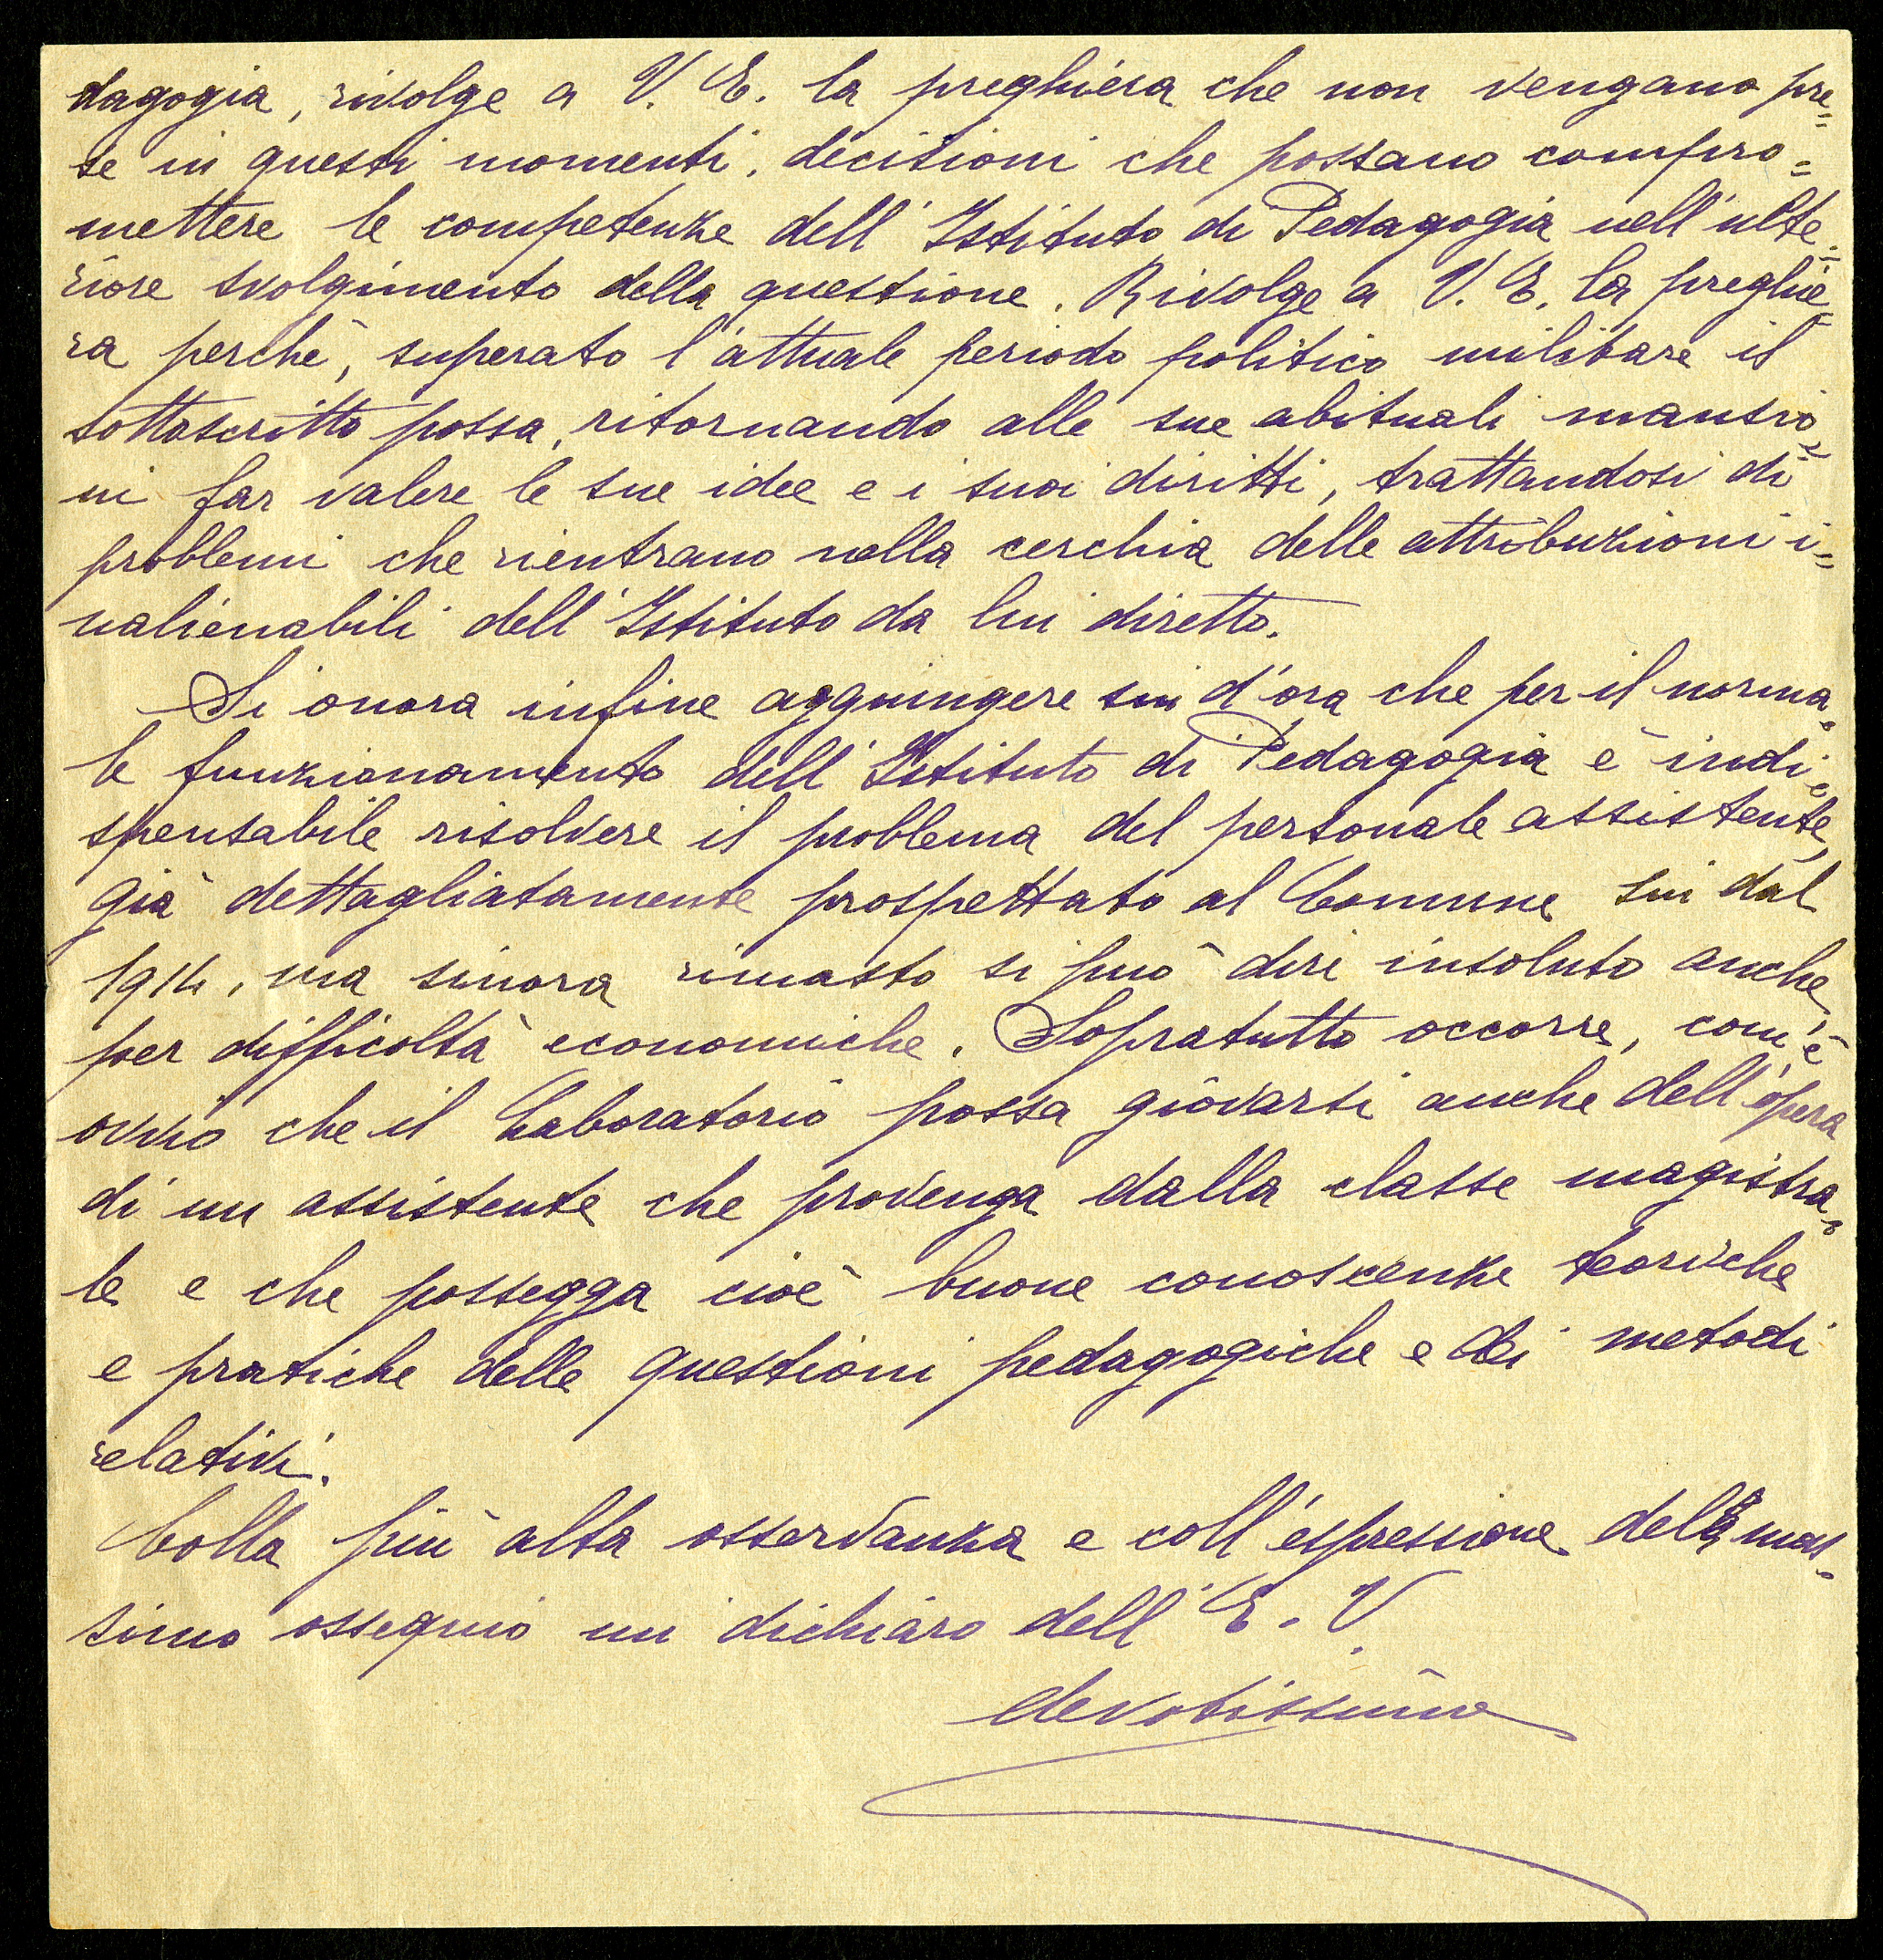 dagogia, rivolge a V. E. la preghiera che non vengano pre=
se in questi momenti, decisioni che possano compro=
mettere le competenze dell'Istituto di Pedagogia nell'ulte=
riore svolgimento della questione. Rivolge a V. E. la preghie=
ra perchè, superato l'attuale periodo politico militare il
sottoscritto possa, ritornando alle sue abituali mansio=
ni far valere le sue idee e i suoi diritti, trattandosi di
problemi che rientrano nella cerchia delle attribuzioni i=
nalienabili dell'Istituto da lui diretto.
Si onora infine aggiungere sin d'ora che per il norma=
le funzionamento dell'Istituto di Pedagogia è indi=
spensabile risolvere il problema del personale assistente,
già dettagliatamente prospettato al Comune sin dal
1914, ma sinora rimasto si può dire insoluto anche
per difficoltà economiche. Sopratutto occorre, com'è
ovvio che il Laboratorio possa giovarsi anche dell'opera
di un assistente che provenga dalla classe magistra=
le e che possegga cioè buone conoscenze teoriche
e pratiche delle questioni pedagogiche e dei metodi
relativi.
Colla più alta osservanza e coll'espressione della mas=
simo ossequio mi dichiaro dell'E. V.
devotissimo